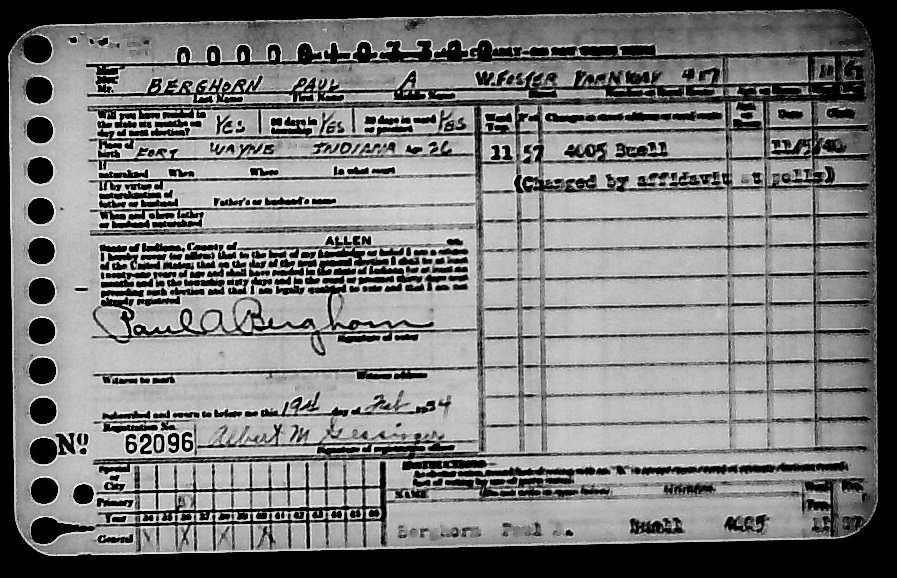 BERGHORN PAUL A W. FOSTER PARKWAY 417
Mr. Last Name First Name Middle Name
Will you have resided in the state six months on day of next election? YES 60 days in township YES 30 days in ward or precinct YES
Changes in street address or rural route Date Clerk
Place of birth FORT WAYNE INDIANA 26
11 57 4005 Buell 11/5/40
(Changed by affidavit at polls)
If naturalized When Where In what court
If by virtue of naturalization of father or husband Father's or husband's name
When and where father or husband naturalized
State of Indiana, County of ALLEN ss.
I hereby swear (or affirm) that to the best of my knowledge or belief I am a citizen
of the United States; that on the day of the next general election I shall be at least
twenty-one years of age and shall have resided in the state of Indiana for at least six
months and in the township sixty days and in the ward or precinct thirty days
preceding such election and that I am legally qualified to vote and that I am not
already registered
Paul A Berghorn
Signature of voter
Witness to mark Witness address
Subscribed and sworn to before me this 19th day of Feb 1934
Registration No.
Nº 62096 Albert M
Signature of registration officer
Special or City
Primary X
Year 34 35 36 37 38 39 40 41 42 43 44 45 46
General X X X X
NAME
Berghorn Paul A. Buell 4005 11 57